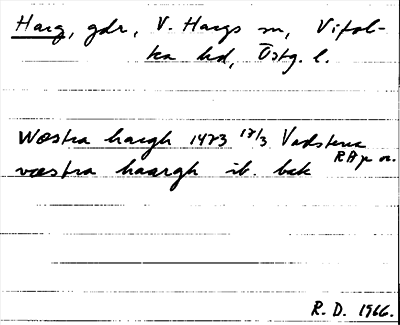 Harg, gdr, V. Hargs sn, Vifol-
ka hd, Östg. l.
Wæstra hargh 1423 12/3 Vadstena
RAp or.
væstra haargh ib. bak
R. D. 1966.